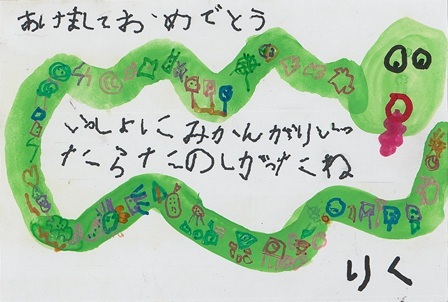 あけましておめでとう
いっしょにみかんがりいっ
たらたのしかったね
りく